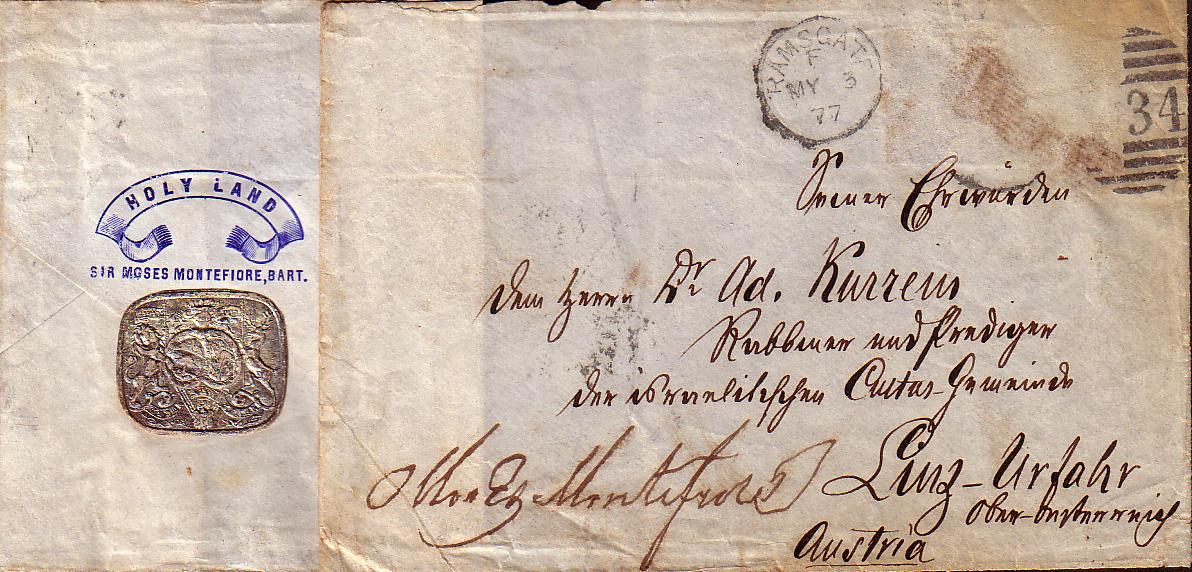 HOLY LAND
SIR MOSES MONTEFIORE, BART.
RAMSGATE
F
MY 3
77
34
Seiner Ehrwürden
dem Herrn Dr Ad. Kurrein
Rabbiner und Prediger
der israelitischen Cultus-Gemeinde
Linz-Urfahr
Ober-Oesterreich
Austria
Montefiore